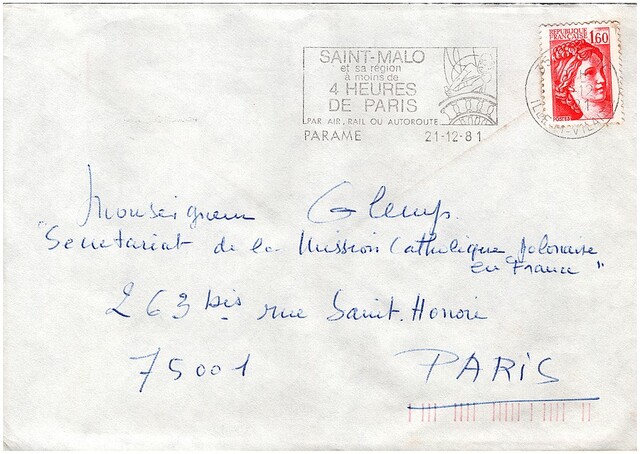 SAINT-MALO
et sa région
à moins de
4 HEURES
DE PARIS
PAR AIR, RAIL OU AUTOROUTE
PARAME 21-12-81
REPUBLIQUE
FRANÇAISE 1,60
POSTES
ILLE-ET-VILAINE
Monseigneur Glemp.
"Secretariat de la Mission Catholique Polonaise
en France"
263 bis rue Saint. Honoré
75001 PARIS